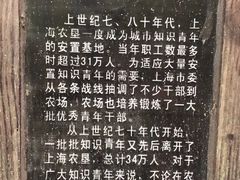 上世纪七、八十年代，上
海农垦一度成为城市知识青年
的安置基地。当年职工数最多
时超过31万人。为适应大量安
置知识青年的需要，上海市委
从各条战线抽调了不少干部到
农场，农场也培养锻炼了一大
批优秀青年干部。
从上世纪七十年代开始，
一批批知识青年又先后离开了
上海农垦，总计34万人。对于
广大知识青年来说，不论在农